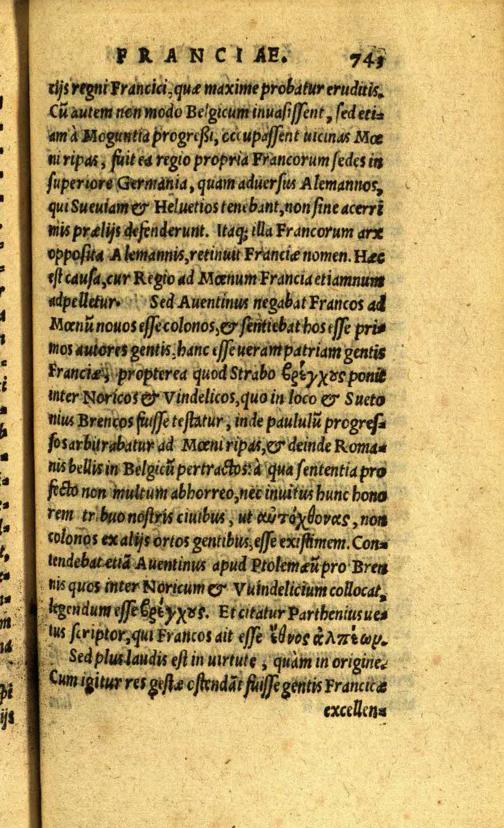 FRANCIAE. 743
tijs regni Francici, quæ maxime probatur eruditis.
Cũ autem non modo Belgicum inuasissent, sed eti-
am à Moguntia progreßi, occupassent uicinas Mœ
ni ripas, fuit ea regio propria Francorum sedes in
superiore Germania, quam aduersus Alemannos,
qui Sueuiam & Heluetios tenebant, non sine acerri
mis prælijs defenderunt. Itaq; illa Francorum arx
opposita Alemannis, retinuit Franciæ nomen. Hæc
est causa, cur Regio ad Mœnum Francia etiamnum
adpelletur. Sed Auentinus negabat Francos ad
Mœnũ nouos esse colonos, & sentiebat hos esse pri-
mos autores gentis: hanc esse ueram patriam gentis
Franciæ, propterea quod Strabo βρέγχους ponit
inter Noricos & Vindelicos, quo in loco & Sueto
nius Brencos fuisse testatur, inde paululũ progres-
sos arbitrabatur ad Mœni ripas, & deinde Roma-
nis bellis in Belgicũ pertractos: à qua sententia pro
fecto non multum abhorreo, nec inuitus hunc hono
rem tribuo nostris ciuibus, ut αὐτόχθονας, non
colonos ex alijs ortos gentibus, esse existimem. Con-
tendebat etiã Auentinus apud Ptolemæũ pro Bren
nis quos inter Noricum & Vuindelicium collocat,
legendum esse βρέγχους. Et citatur Parthenius ue-
tus scriptor, qui Francos ait esse ἔθνος ἀλπέων.
Sed plus laudis est in uirtute, quàm in origine.
Cum igitur res gestæ ostendãt fuisse gentis Francicæ
excellen-